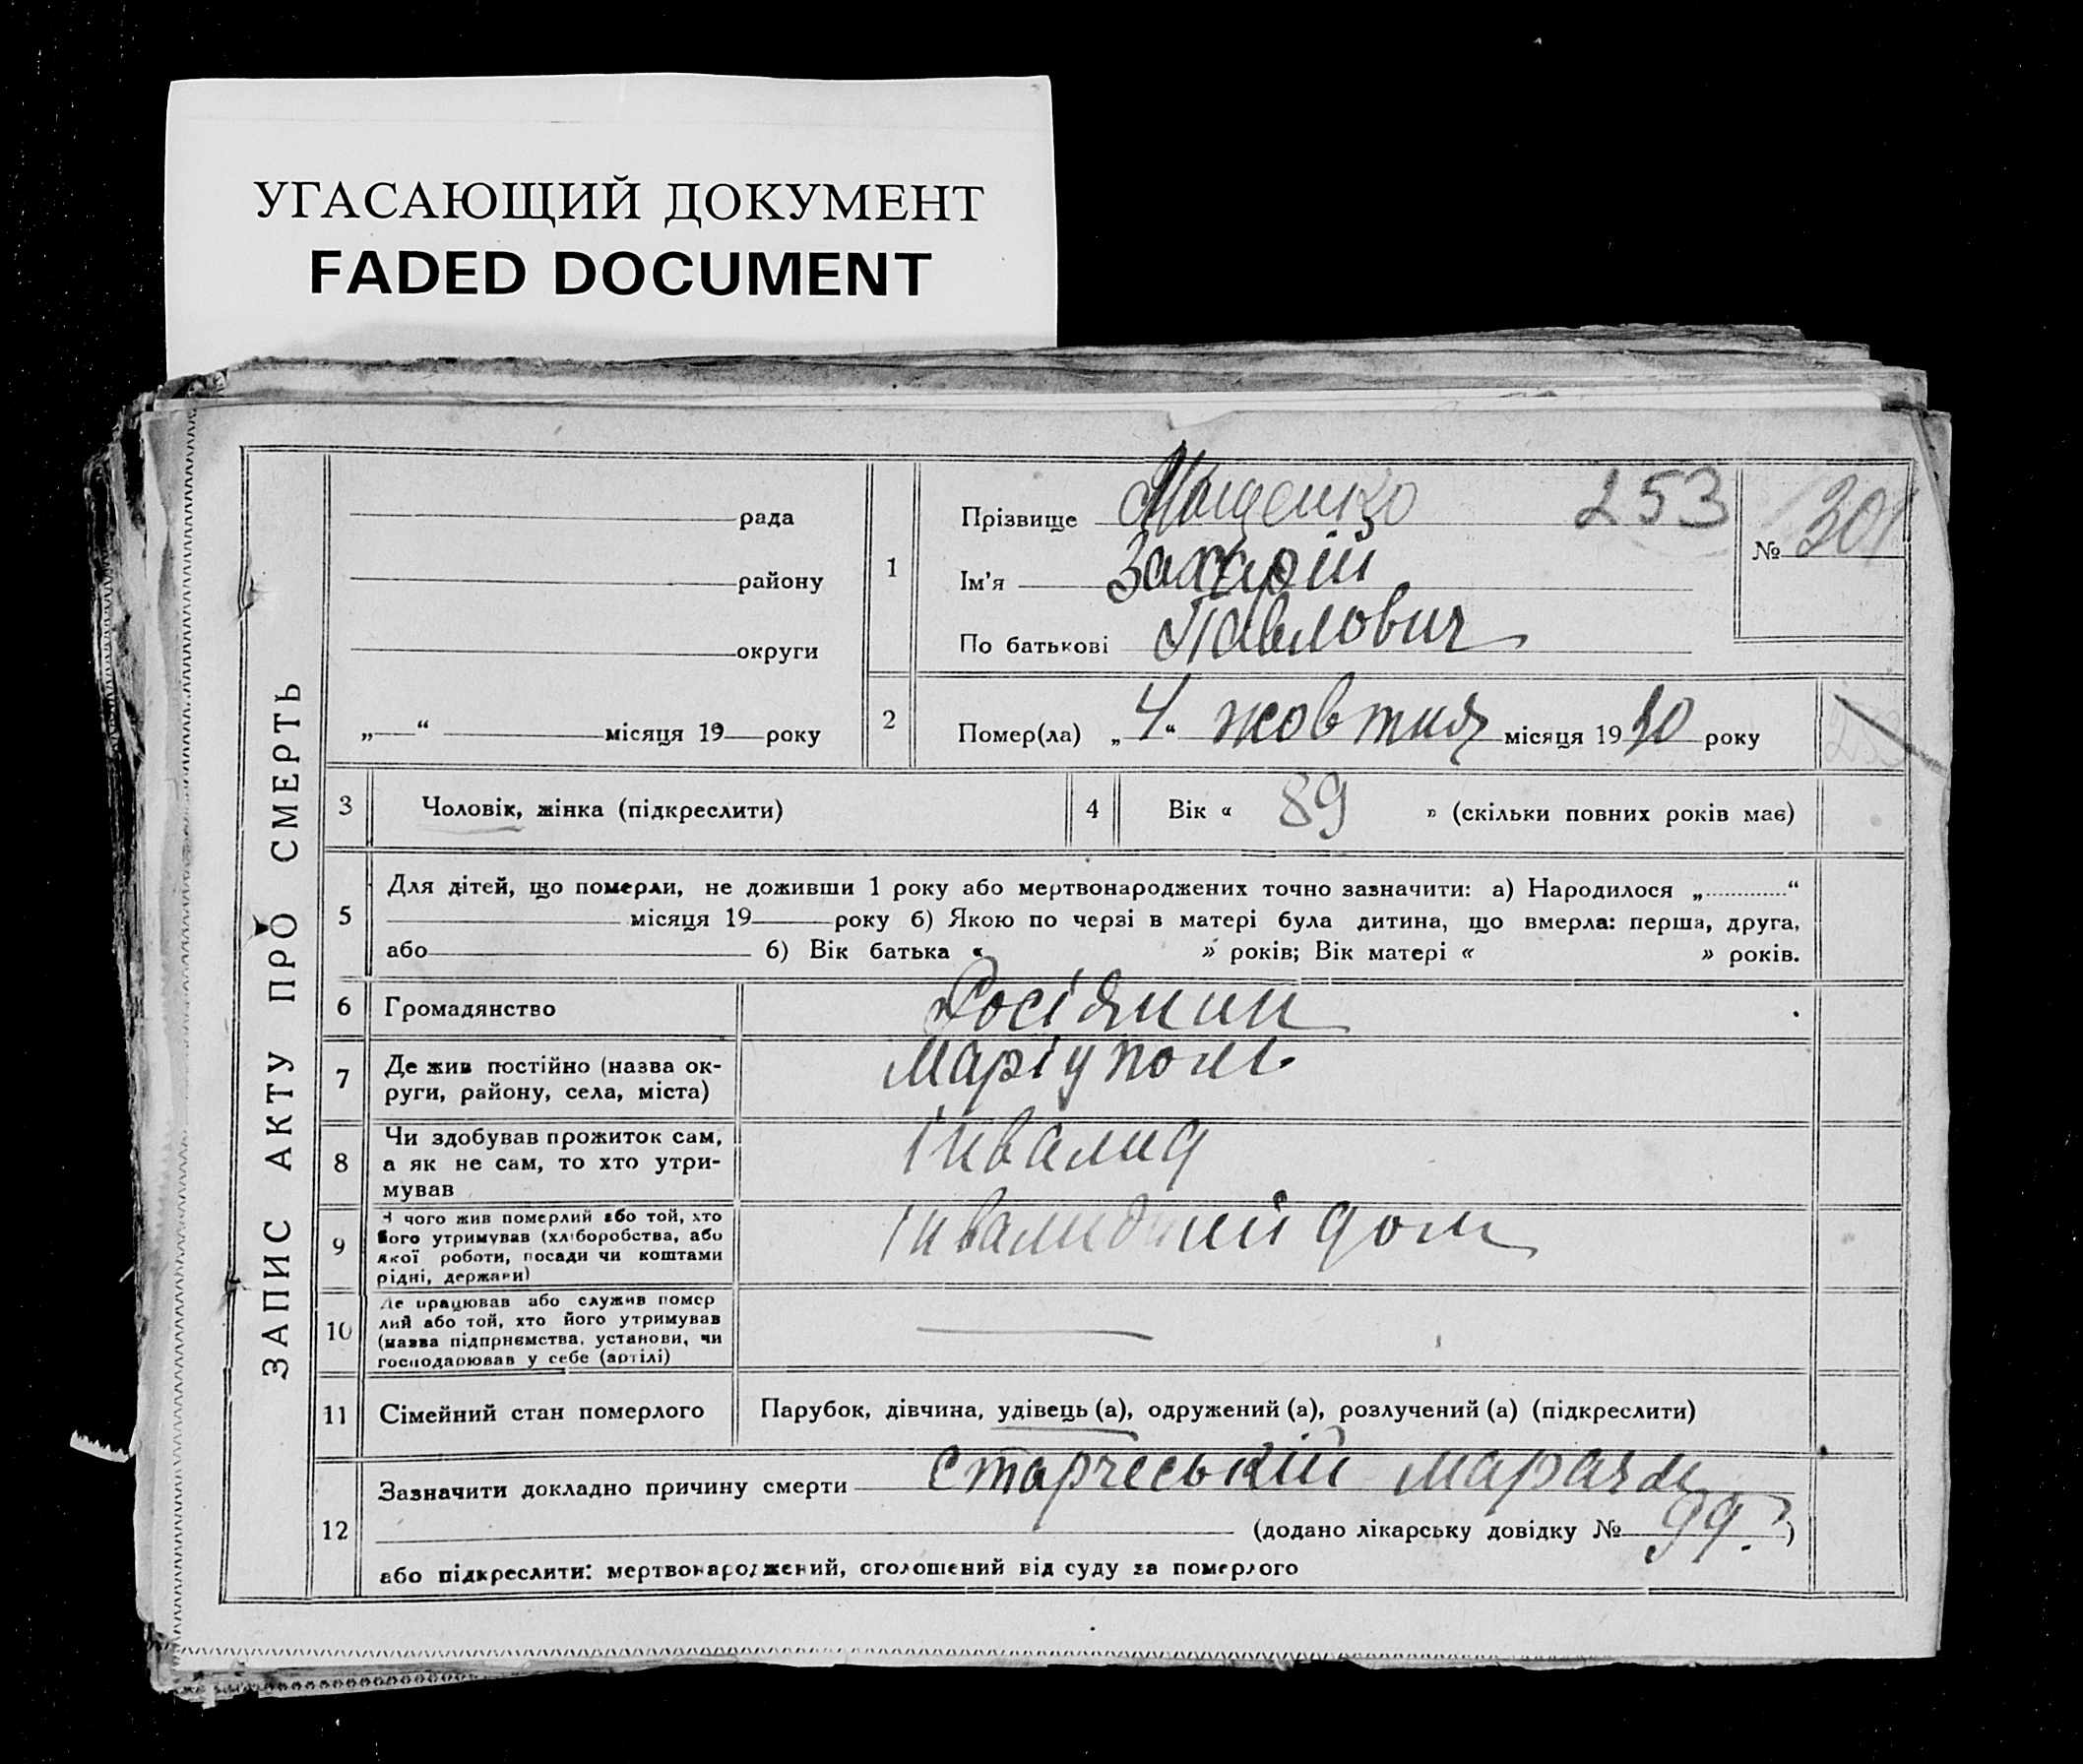 УГАСАЮЩИЙ ДОКУМЕНТ
FADED DOCUMENT
ЗАПИС АКТУ ПРО СМЕРТЬ
рада
району
округи
„ “ місяця 19 року
1
Прізвище 253
Ім'я Захарій
По батькові Павлович
№ 301
2
Помер(ла) „ 4 “ жовтня місяця 19 30 року
3
Чоловік, жінка (підкреслити)
4
Вік « 89 » (скільки повних років має)
5
Для дітей, що померли, не доживши 1 року або мертвонароджених точно зазначити: а) Народилося „ “
місяця 19 року б) Якою по черзі в матері була дитина, що вмерла: перша, друга,
або б) Вік батька « » років; Вік матері « » років.
6
Громадянство
Росіянин
7
Де жив постійно (назва ок-
руги, району, села, міста)
Маріуполь
8
Чи здобував прожиток сам,
а як не сам, то хто утри-
мував
Інвалид
9
З чого жив померлий або той, хто
його утримував (хліборобства, або
якої роботи, посади чи коштами
рідні, держави)
Інвалидний дом
10
Де працював або служив помер
лий або той, хто його утримував
(назва підприємства, установи, чи
господарював у себе (артілі)
11
Сімейний стан померлого
Парубок, дівчина, удівець (а), одружений (а), розлучений (а) (підкреслити)
12
Зазначити докладно причину смерти старчеський маразм
(додано лікарську довідку № 99 )
або підкреслити: мертвонароджений, оголошений від суду за померлого